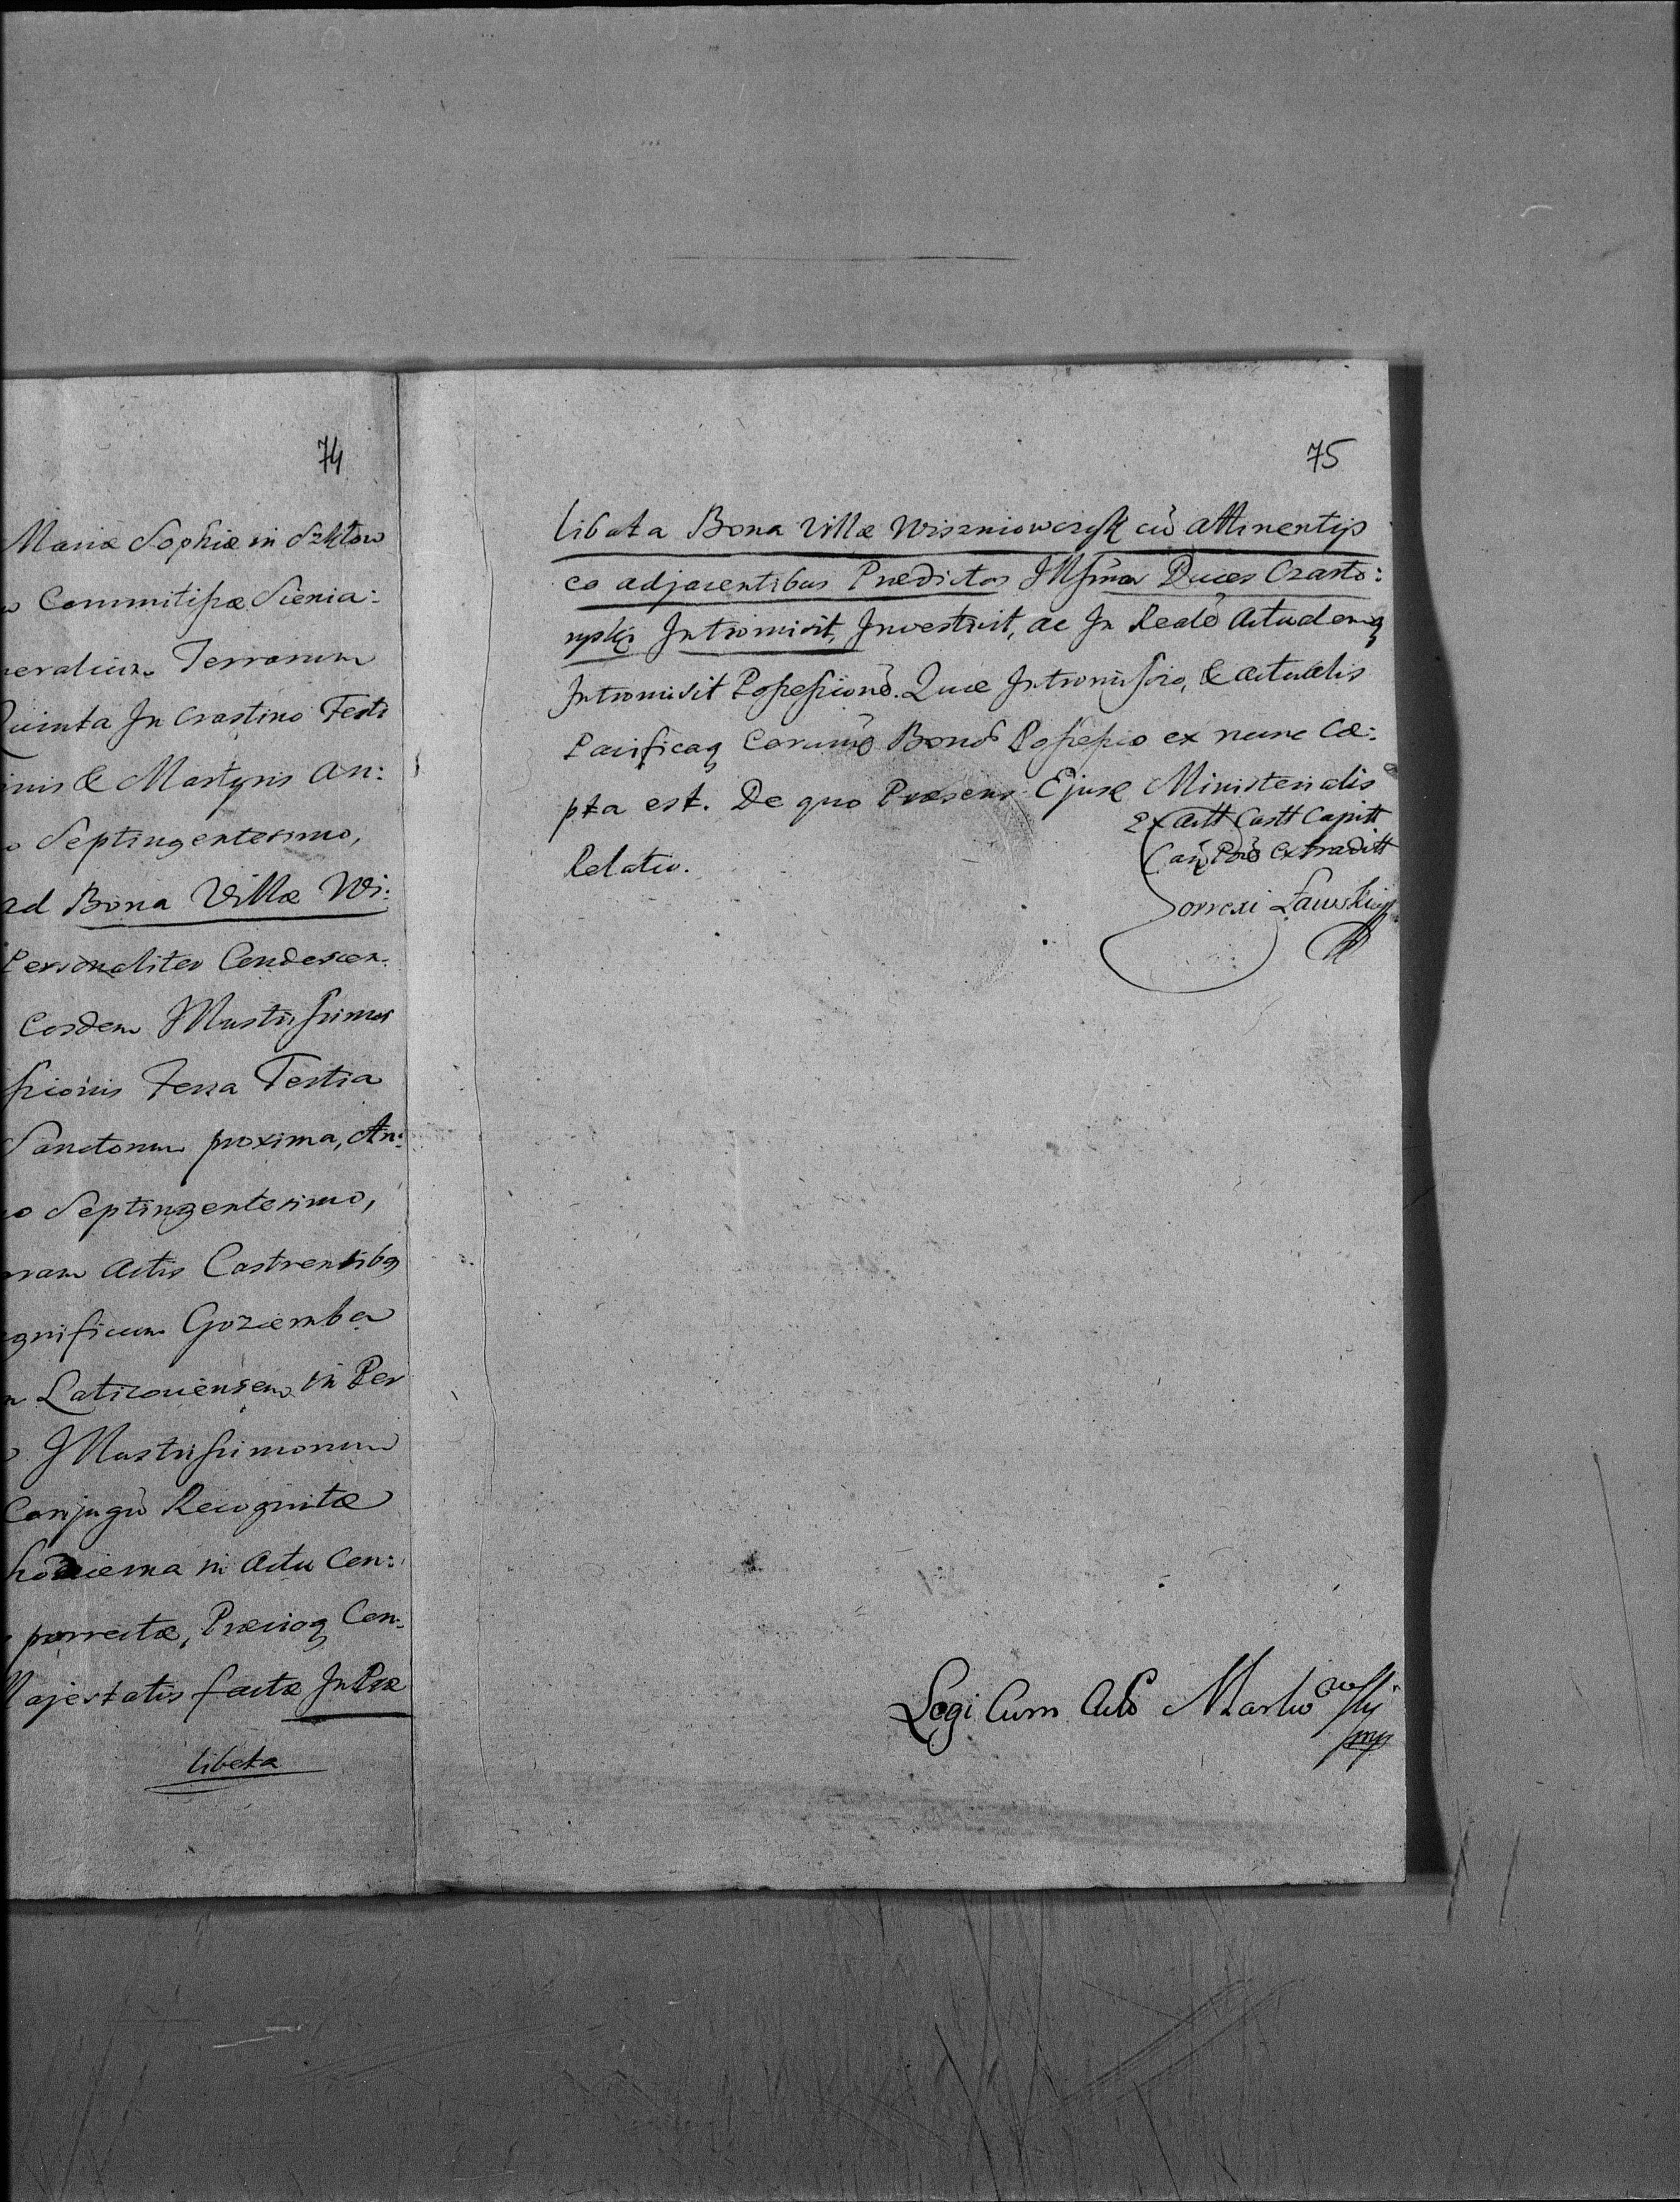 74
Mariæ Sophiæ in Szkłow
Committissæ Sienia:
neralium Terrarum
Quinta In Crastino Festi
inis & Martyris An:
o Septingentesimo,
ad Bona Villæ Wi:
Personaliter Condescen
Eosdem Illustrissimos
ssionis Feria Tertia
Sanctorum proxima, An:
no Septingentesimo,
Actis Castrensibq
gnificum Goziemba
m Laticoviensem in Per
Illustrissimorum
Conjugū Recognitæ
hodierna in Actu Con:
porrectæ, Præviaq Con:
Majestatis factæ In Præ
libata
75
libata Bona Villæ Wiszniowczyk cū attinentijs
eo adjacentibus Prædictos Illssimos Duces Czarto:
ryski Intromisit, Investivit, ac In Realē Actualemq
Intromisit Possessionē. Quæ Intromissio, & actualis
Pacificaq Bonor Possessio ex nunc Cæ:
pta est. De quo Præsens Ejusd Ministerialis
Relatio.
Ex Actt Castt Capitt
extraditt
Correxi Ławski mp
Legi Cum Actis Markowskj
mp